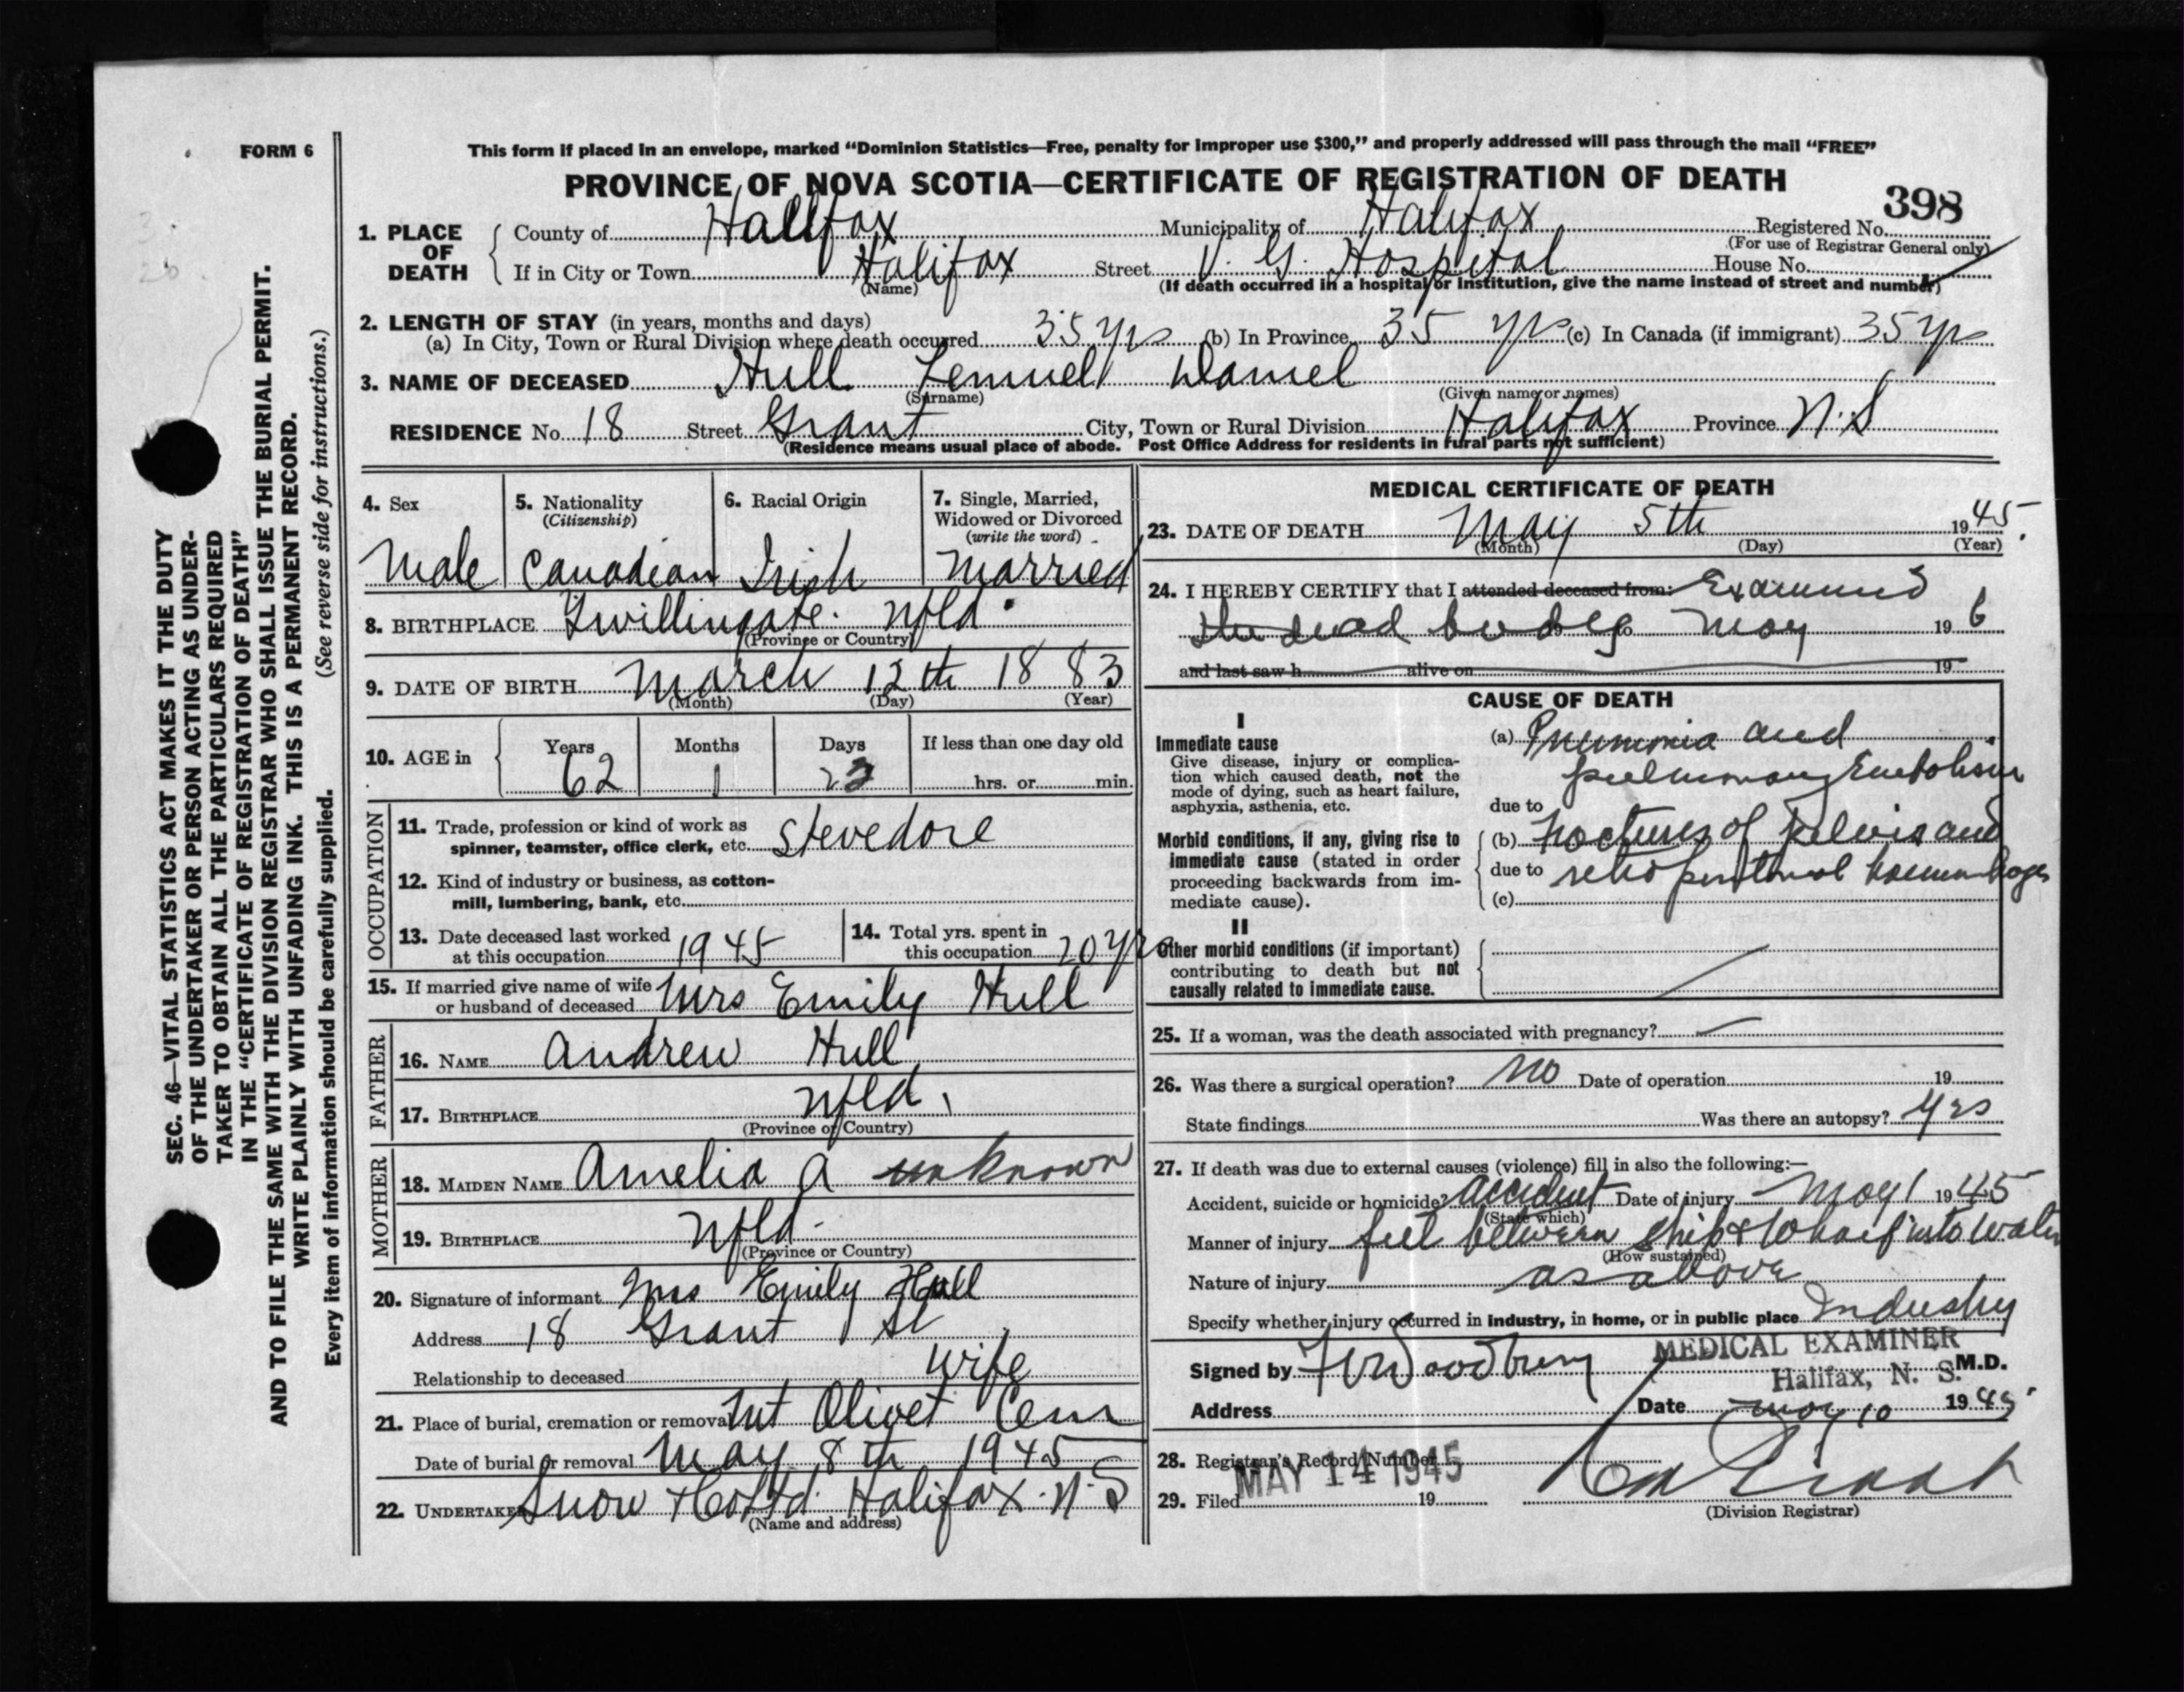 FORM 6
This form if placed in an envelope, marked “Dominion Statistics—Free, penalty for improper use $300,” and properly addressed will pass through the mail “FREE”
PROVINCE OF NOVA SCOTIA—CERTIFICATE OF REGISTRATION OF DEATH
398
1. PLACE OF DEATH
County of Halifax Municipality of Halifax Registered No.
(For use of Registrar General only)
If in City or Town Halifax Street V. G. Hospital House No.
(Name) (If death occurred in a hospital or institution, give the name instead of street and number)
2. LENGTH OF STAY (in years, months and days)
(a) In City, Town or Rural Division where death occurred 35 yrs (b) In Province 35 yrs (c) In Canada (if immigrant) 35 yrs
3. NAME OF DECEASED Hull Lemuel Daniel
(Surname) (Given name or names)
RESIDENCE No. 18 Street Grant City, Town or Rural Division Halifax Province N.S
(Residence means usual place of abode. Post Office Address for residents in rural parts not sufficient)
4. Sex
Male
5. Nationality
(Citizenship)
Canadian
6. Racial Origin
Irish
7. Single, Married,
Widowed or Divorced
(write the word)
Married
8. BIRTHPLACE Twillingate. Nfld.
(Province or Country)
9. DATE OF BIRTH March 12th 1883
(Month) (Day) (Year)
10. AGE in
Years Months Days If less than one day old
62 1 23 hrs. or min.
OCCUPATION
11. Trade, profession or kind of work as
spinner, teamster, office clerk, etc. Stevedore
12. Kind of industry or business, as cotton-
mill, lumbering, bank, etc.
13. Date deceased last worked
at this occupation 1945
14. Total yrs. spent in
this occupation 20 yrs
15. If married give name of wife
or husband of deceased Mrs Emily Hull
FATHER
16. NAME Andrew Hull
17. BIRTHPLACE Nfld.
(Province or Country)
MOTHER
18. MAIDEN NAME Amelia A unknown
19. BIRTHPLACE Nfld.
(Province or Country)
20. Signature of informant Mrs Emily Hull
Address 18 Grant St
Relationship to deceased wife
21. Place of burial, cremation or removal Mt Olivet Cem
Date of burial or removal May 8th 1945
22. UNDERTAKER Snow & Co Ltd. Halifax. N.S
(Name and address)
MEDICAL CERTIFICATE OF DEATH
23. DATE OF DEATH May 5th 1945.
(Month) (Day) (Year)
24. I HEREBY CERTIFY that I attended deceased from: Examined
the dead body to May 19 6
and last saw h alive on 19
CAUSE OF DEATH
I
Immediate cause
Give disease, injury or complica-
tion which caused death, not the
mode of dying, such as heart failure,
asphyxia, asthenia, etc.
(a) Pneumonia and
pulmonary Embolism
due to
Morbid conditions, if any, giving rise to
immediate cause (stated in order
proceeding backwards from im-
mediate cause).
(b) Fractures of pelvis and
due to retroperitoneal haemorrhages
(c)
II
Other morbid conditions (if important)
contributing to death but not
causally related to immediate cause.
25. If a woman, was the death associated with pregnancy?
26. Was there a surgical operation? No Date of operation 19
State findings Was there an autopsy? yes
27. If death was due to external causes (violence) fill in also the following:—
Accident, suicide or homicide? Accident Date of injury May 1 1945
(State which)
Manner of injury fell between ship & wharf into water
(How sustained)
Nature of injury as above
Specify whether injury occurred in industry, in home, or in public place Industry
Signed by Woodbury M.D.
MEDICAL EXAMINER
Halifax, N. S.
Address Date May 10 1945
28. Registrar's Record Number
MAY 14 1945
29. Filed 19
(Division Registrar)
SEC. 46—VITAL STATISTICS ACT MAKES IT THE DUTY
OF THE UNDERTAKER OR PERSON ACTING AS UNDER-
TAKER TO OBTAIN ALL THE PARTICULARS REQUIRED
IN THE “CERTIFICATE OF REGISTRATION OF DEATH”
AND TO FILE THE SAME WITH THE DIVISION REGISTRAR WHO SHALL ISSUE THE BURIAL PERMIT.
WRITE PLAINLY WITH UNFADING INK. THIS IS A PERMANENT RECORD.
(See reverse side for instructions.)
Every item of information should be carefully supplied.